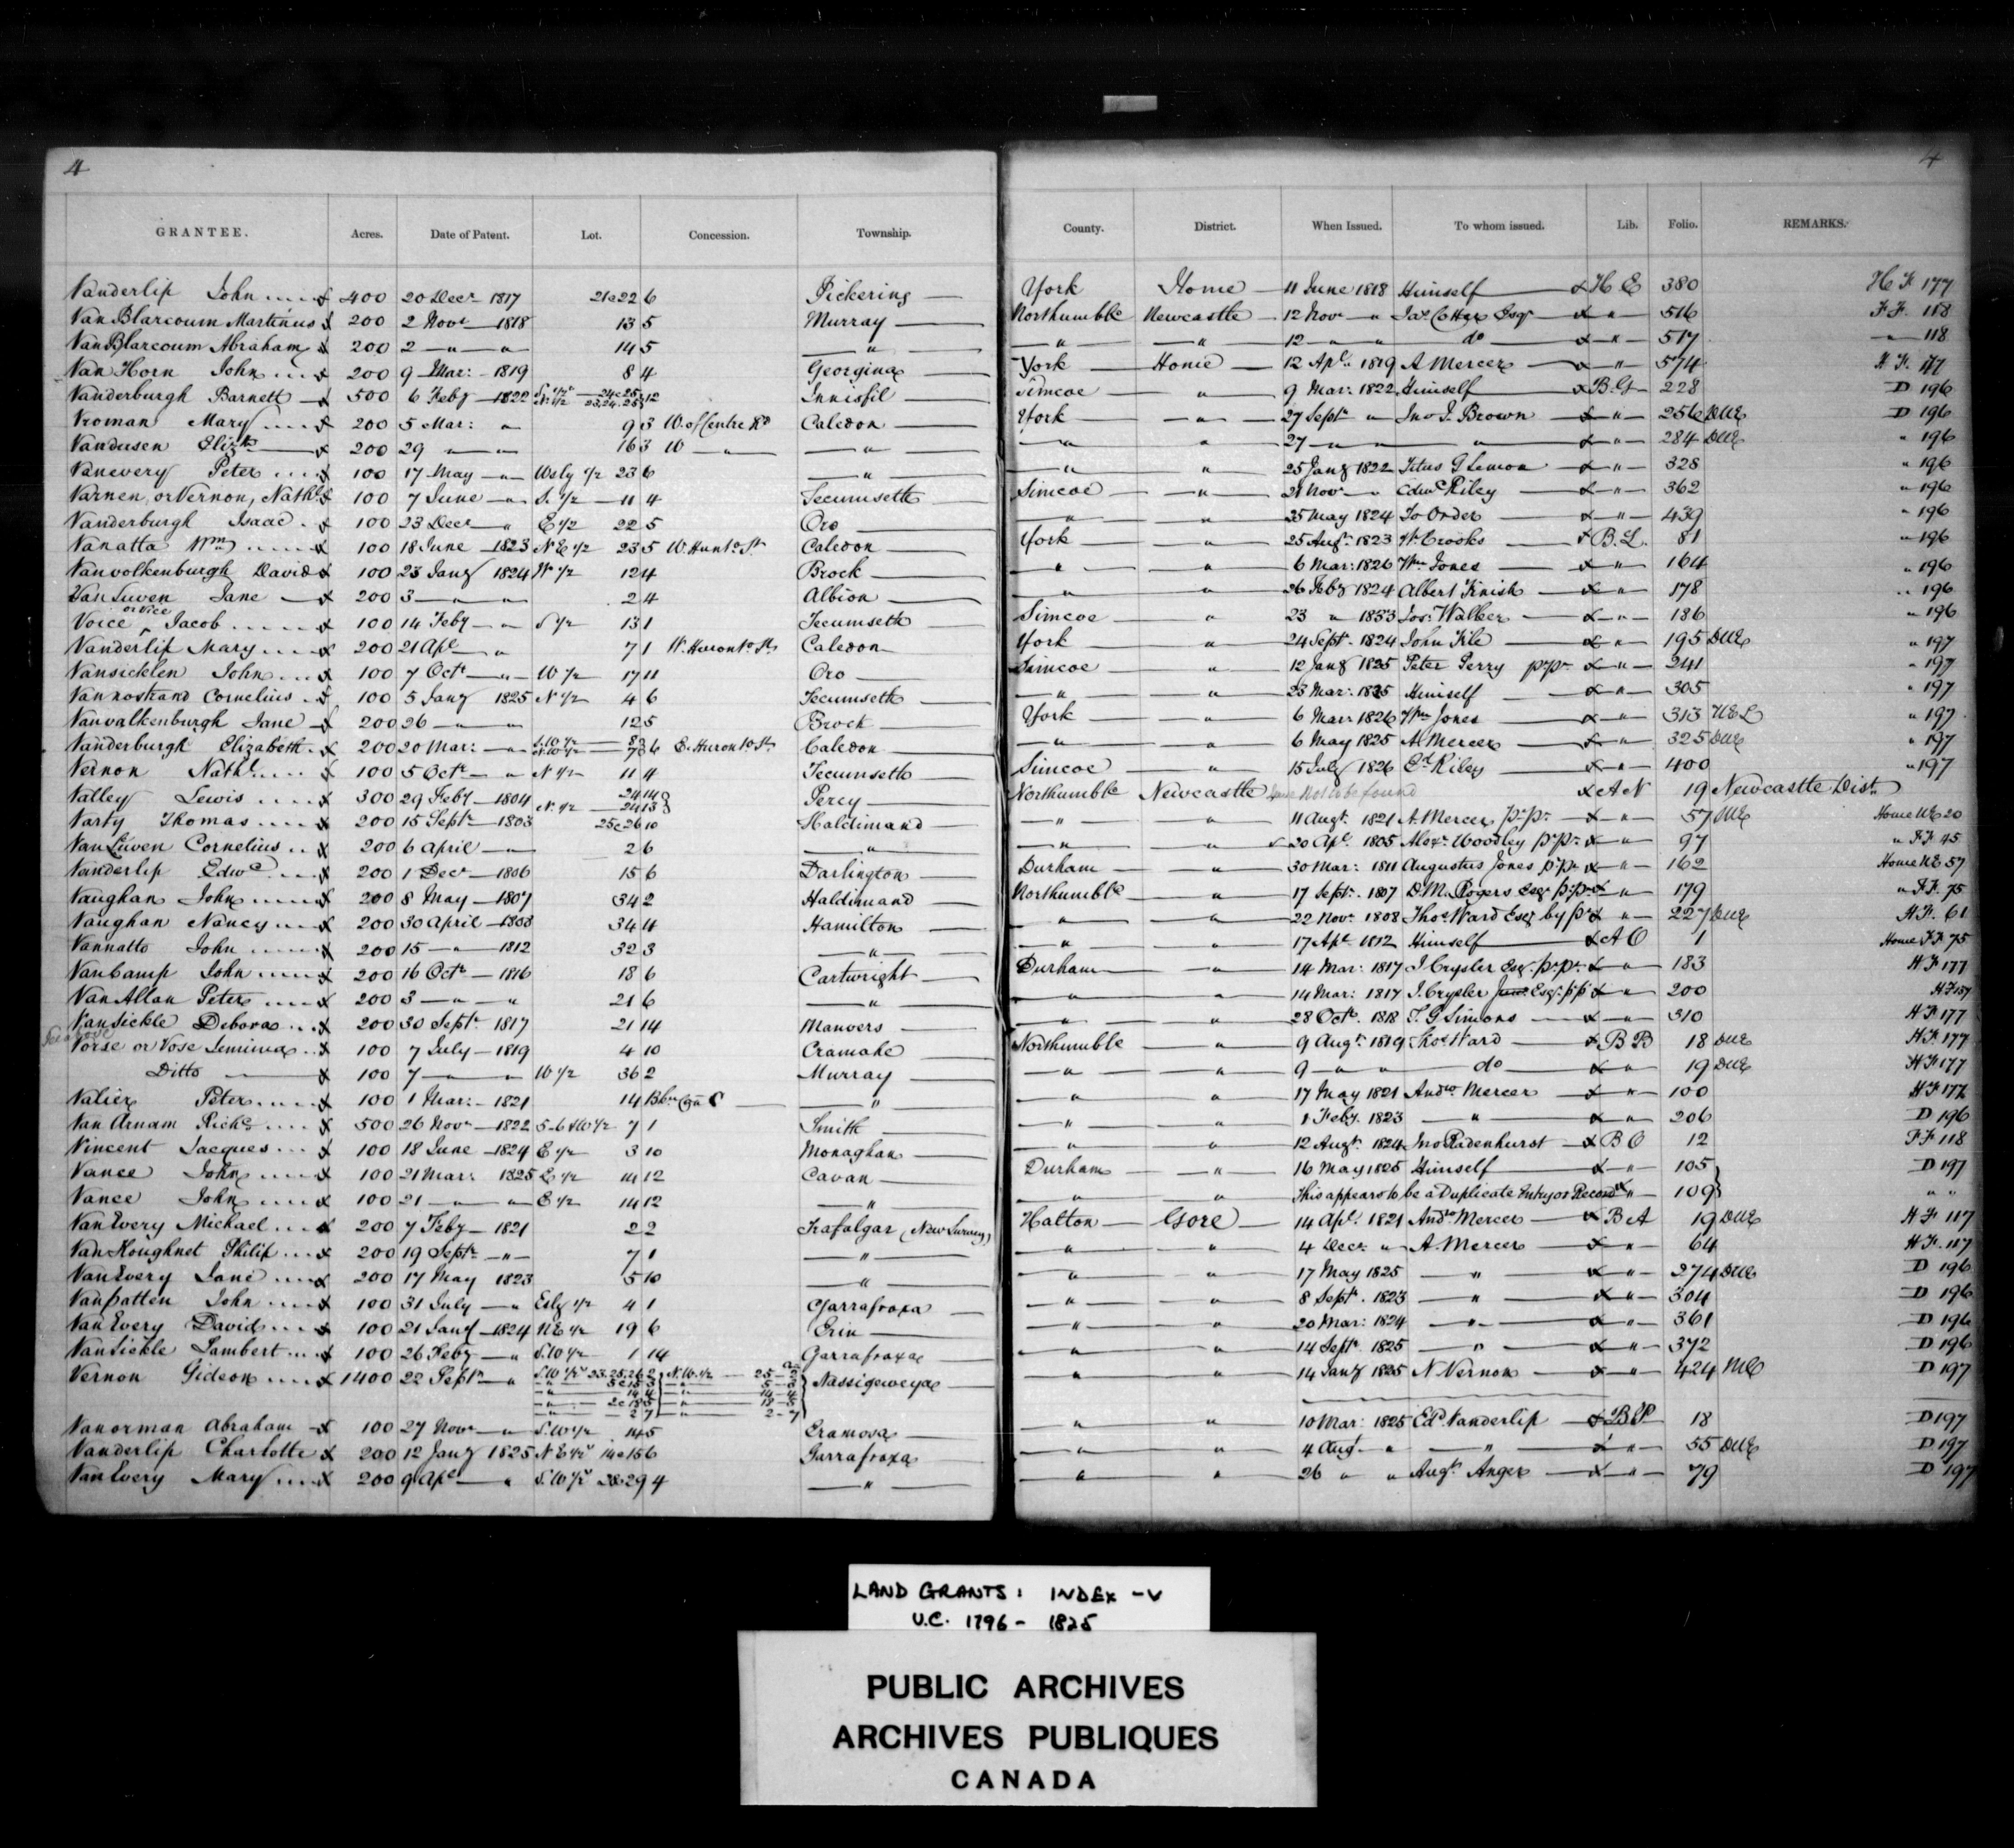 4
4
GRANTEE. Acres. Date of Patent. Lot. Concession. Township. County. District. When Issued. To whom issued. Lib. Folio. REMARKS.
Vanderlip John 400 20 Decr 1817 21 & 22 6 Pickering York Home 11 June 1818 Himself H E 380 H F 177
Van Blarcoum Martinus 200 2 Novr 1818 13 5 Murray Northumbld Newcastle 12 Novr " Esqr " 516 F F. 118
Van Blarcoum Abraham 200 2 " " 14 5 " " " 12 " " do " 517 " 118
Van Horn John 200 9 Mar: 1819 8 4 Georgina York Home 12 Apl 1819 A Mercer " 574 H F. 177
Vanderburgh Barnett 500 6 Feby 1822 S. 1/2 24 & 25 N. 1/2 23, 24, 25 12 Innisfil Simcoe " 9 Mar: 1822 Himself B. G 228 D 196
Vroman Mary 200 5 Mar: " 9 3 W. of Centre Rd Caledon York " 27 Septr " Jno J. Brown " 256 DUE D 196
Vandusen Elizth 200 29 " " 16 3 W " " " " 27 " " " " 284 DUE " 196
Vanevery Peter 100 17 May " Wsly 1/2 23 6 " " " 25 Jany 1822 Titus G Lemon " 328 " 196
Varnen, or Vernon, Nathl 100 7 June " S. 1/2 11 4 Tecumseth Simcoe " 21 Novr " Edwd Riley " 362 " 196
Vanderburgh Isaac 100 23 Decr " E 1/2 22 5 Oro " " 25 May 1824 To Order " 439 " 196
Vanatta Wm 100 18 June 1823 N E 1/2 23 5 W. Huro St Caledon York " 25 Augt 1823 W. Crooks B. L. 81 " 196
Vanvolkenburgh David 100 23 Jany 1824 W 1/2 12 4 Brock " " 6 Mar: 1826 Wm Jones " 164 " 196
Van Luven Jane 200 3 " " 2 4 Albion " " 26 Feby 1824 Albert Finich " 178 " 196
Voice or Vice Jacob 100 14 Feby " S 1/2 13 1 Tecumseth Simcoe " 23 " 1833 Jos. Walker " 186 " 196
Vanderlip Mary 200 21 Apl " 7 1 W. Huron to St Caledon York " 24 Septr 1824 John Kile " 195 DUE " 197
Vansicklen John 100 7 Octr " W 1/2 17 11 Oro Simcoe " 12 Jany 1825 Peter Perry pr pr " 241 " 197
Vannostrand Cornelius 100 5 Jany 1825 N 1/2 4 6 Tecumseth " " 23 Mar: 1825 Himself " 305 " 197
Vanvalkenburgh Jane 200 26 " " 12 5 Brock York " 6 Mar: 1826 Wm Jones " 313 UEL " 197
Vanderburgh Elizabeth 200 20 Mar: " S.W 1/2 8 N.W 1/2 7 6 E. Huron to St Caledon " " 6 May 1825 A. Mercer " 325 DUE " 197
Vernon Nathl 100 5 Octr " N 1/2 11 4 Tecumseth Simcoe " 15 July 1826 Ed Riley " 400 " 197
Valley Lewis 300 29 Feby 1804 24 14 N. 1/2 24 13 Percy Northumbld Newcastle Not to be found A N 19 Newcastle Dist
Varty Thomas 200 15 Septr 1803 25 & 26 10 Haldimand " " 11 Augt 1821 A. Mercer pr pr " 57 UE Home UE 20
Van Luven Cornelius 200 6 April " 2 6 " " " 20 Apl 1805 Alexr Woodley pr pr " 97 " F F 45
Vanderlip Edwd 200 1 Decr 1806 15 6 Darlington Durham " 30 Mar: 1811 Augustus Jones pr pr " 162 Home UE 57
Vaughan John 200 8 May 1807 34 2 Haldimand Northumbld " 17 Septr 1807 D. M. Rogers Esqr pr pr " 179 " F F. 75
Vaughan Nancy 200 30 April 1808 34 4 Hamilton " " 22 Novr 1808 Thos Ward Esqr by pr " 227 DUE H F. 61
Vannatto John 200 15 " 1812 32 3 " " " 17 Apl 1812 Himself A O 1 Home F F 75
VanCamp John 200 16 Octr 1816 18 6 Cartwright Durham " 14 Mar: 1817 J Crysler Esqr pr pr " 183 H F 177
Van Allan Peter 200 3 " " 21 6 " " " 14 Mar: 1817 J. Crysler Junr Esqr pr pr " 200 H F 157
VanSickle Debora 200 30 Septr 1817 21 14 Manvers " " 28 Octr 1818 T. G Simons " 310 H F 177
See above
Vorse or Vose Jemima 100 7 July 1819 4 10 Cramahe Northumbld " 9 Augt 1819 Thos Ward B B 18 DUE H F 177
Ditto 100 7 " " W 1/2 36 2 Murray " " 9 " " do " 19 DUE H F 177
Valier Peter 100 1 Mar: 1821 14 Bkn Con C " " " 17 May 1821 Andw Mercer " 100 H F 177
Van Arnam Richd 500 26 Novr 1822 5-6 & W 1/2 7 1 Smith " " 1 Feby 1823 " " 206 D 196
Vincent Jacques 100 18 June 1824 E 1/2 3 10 Monaghan " " 12 Augt 1824 Jno Radenhurst B C 12 F F 118
Vance John 100 21 Mar: 1825 E 1/2 14 12 Cavan Durham " 16 May 1825 Himself " 105 D 197
Vance John 100 21 " " E 1/2 14 12 " " " This appears to be a Duplicate Entry or Record " 109 " "
VanEvery Michael 200 7 Feby 1821 2 2 Trafalgar (New Survey) Halton Gore 14 Apl 1821 Andw Mercer B A 19 DUE H F 117
VanKoughnet Philip 200 19 Septr " 7 1 " " " 4 Decr " A. Mercer " 64 H F. 117
VanEvery Jane 200 17 May 1823 5 10 " " " 17 May 1825 " " 274 DUE D 196
Vanpatten John 100 31 July " Esly 1/2 4 1 Garrafraxa " " 8 Septr 1823 " " 304 D 196
Van Every David 100 21 Jany 1824 N E 1/2 19 6 Erin " " 20 Mar: 1824 " " 361 D 196
VanSickle Lambert 100 26 Feby " S.W 1/2 1 14 Garrafraxa " " 14 Septr 1825 " " 372 D 196
Vernon Gideon 1400 22 Septr " S.W 1/2s 23.25.26 2 N.W. 1/2 25 2 Nassigeweya " " 14 Jany 1825 N Vernon " 424 MC D 197
Vanorman Abraham 100 27 Novr " S.W 1/2 14 5 Eramosa " " 10 Mar: 1825 Ed Vanderlip B P 18 D 197
Vanderlip Charlotte 200 12 Jany 1825 N E 1/2s 14 & 15 6 Garrafraxa " " 4 Augt " " " 55 DUE D 197
VanEvery Mary 200 9 Apl " S.W 1/2s 28 & 29 4 " " " 26 " " Augt Anger " 79 D 197
LAND GRANTS: INDEX - V
U.C. 1796 - 1825
PUBLIC ARCHIVES
ARCHIVES PUBLIQUES
CANADA